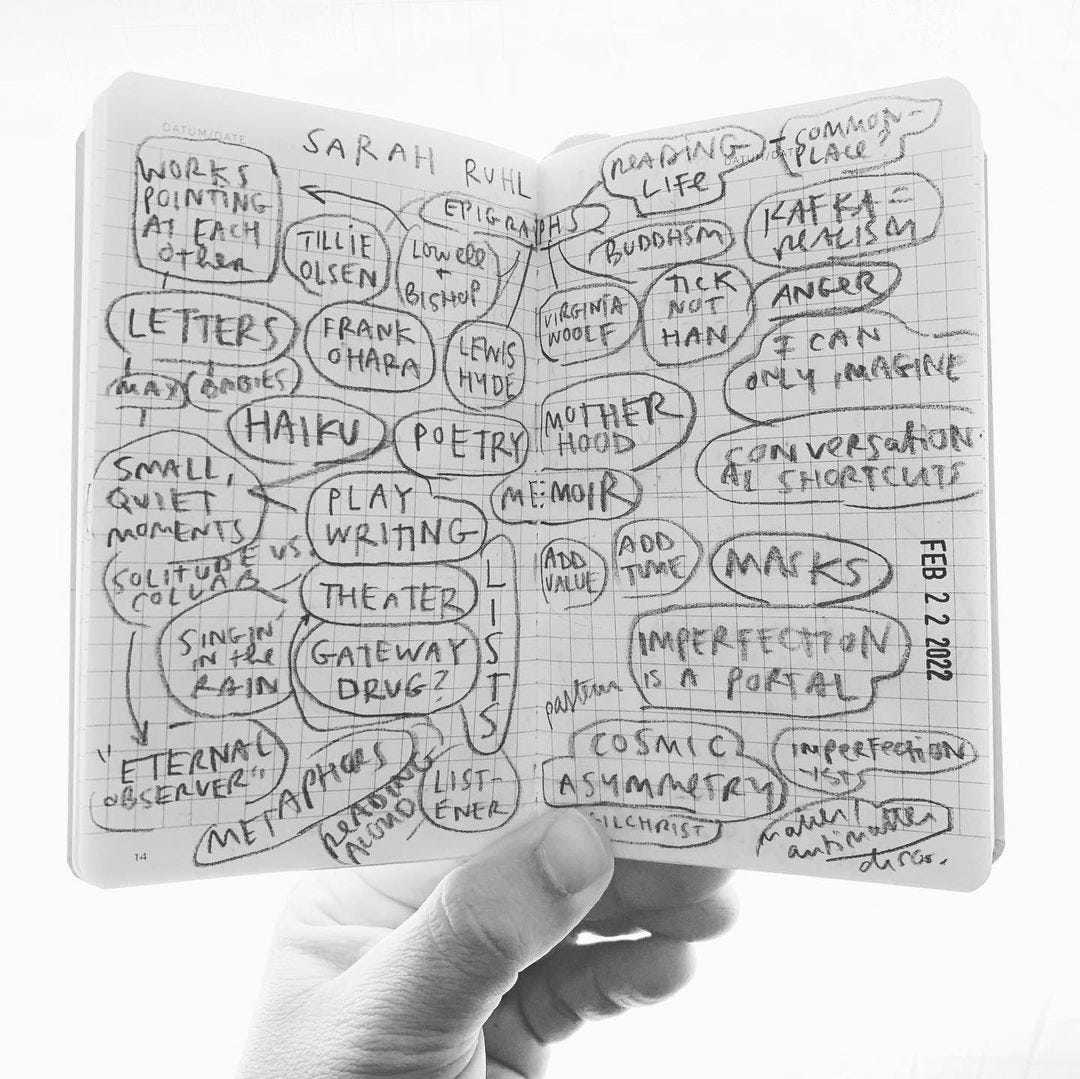 DATUM/DATE
SARAH RUHL
WORKS
POINTING
AT EACH
OTHER
TILLIE
OLSEN
EPIGRAPHS
LOWELL
+
BISHOP
LETTERS
FRANK
OHARA
LEWIS
HYDE
MAX
BABIES
HAIKU
POETRY
SMALL,
QUIET
MOMENTS
PLAY
WRITING
SOLITUDE VS.
COLLAB
THEATER
SINGIN'
IN the
RAIN
GATEWAY
DRUG?
LISTS
"ETERNAL
OBSERVER"
METAPHORS
READING
ALOUD
LIST-
ENER
14
READING
LIFE
DATUM/DATE
COMMON-
PLACE
BUDDHSM
KAFKA =
REALISM
VIRGINIA
WOOLF
TICK
NOT
HAN
ANGER
I CAN
ONLY IMAGINE
MOTHER
HOOD
CONVERSATION
AL SHORTCUTS
MEMOIR
ADD
VALUE
ADD
TIME
MASKS
FEB 22 2022
IMPERFECTION
IS A PORTAL
COSMIC
ASYMMETRY
IMPERFECTION
ISTS
GILCHRIST
matter/
antimatter